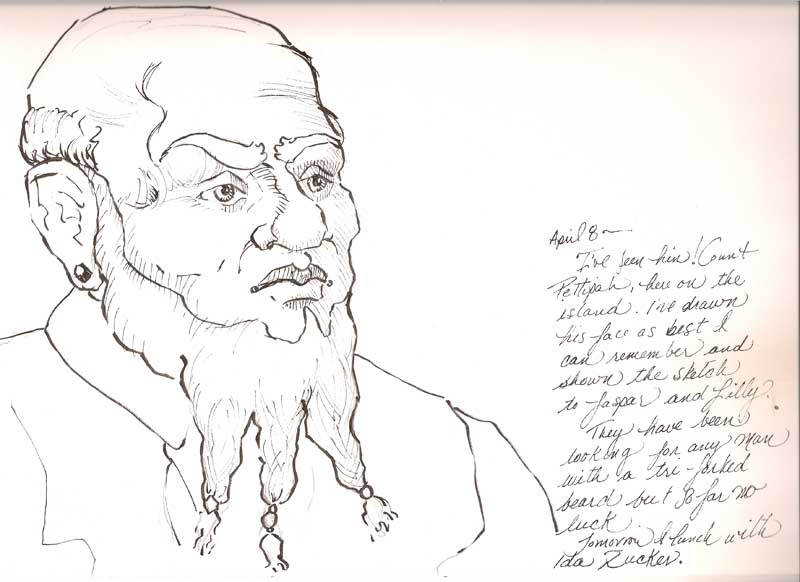 April 8 ~
I've seen him! Count
Pettipah, here on the
island. I've drawn
his face as best I
can remember and
shown the sketch
to Jaspar and Lilly.
They have been
looking for any man
with a tri-forked
beard but so far no
luck.
Tomorrow I lunch with
Ida Zucker.